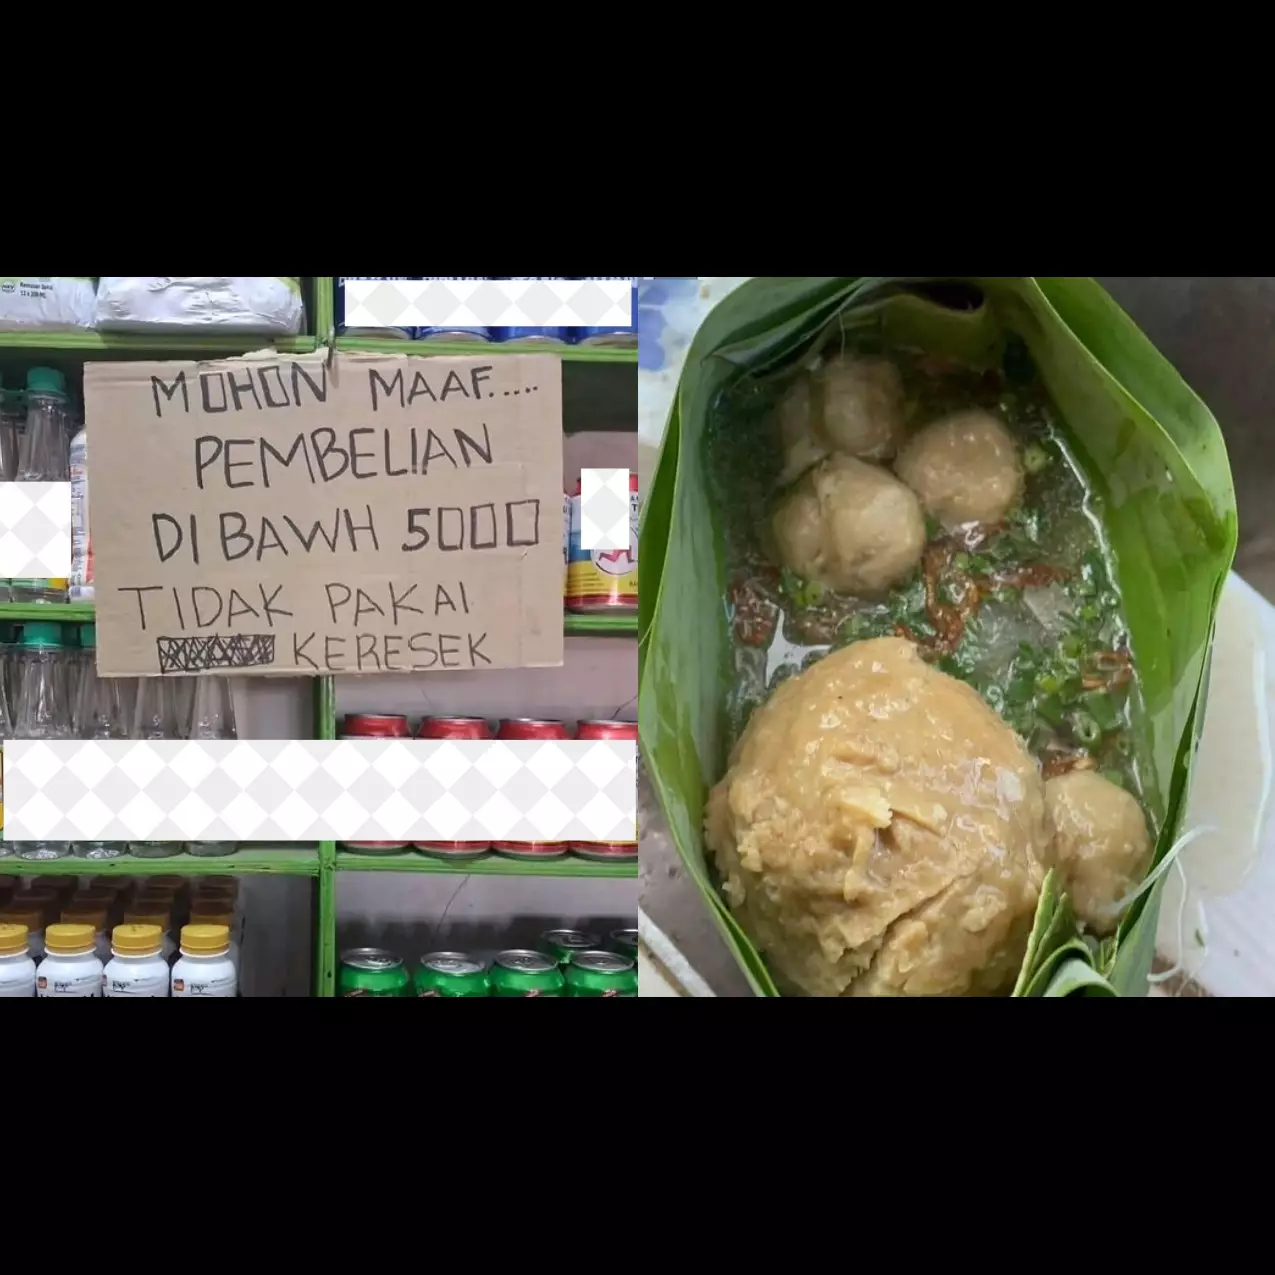 MOHON MAAF.....
PEMBELIAN
DIBAWH 5000
TIDAK PAKAI
KERESEK